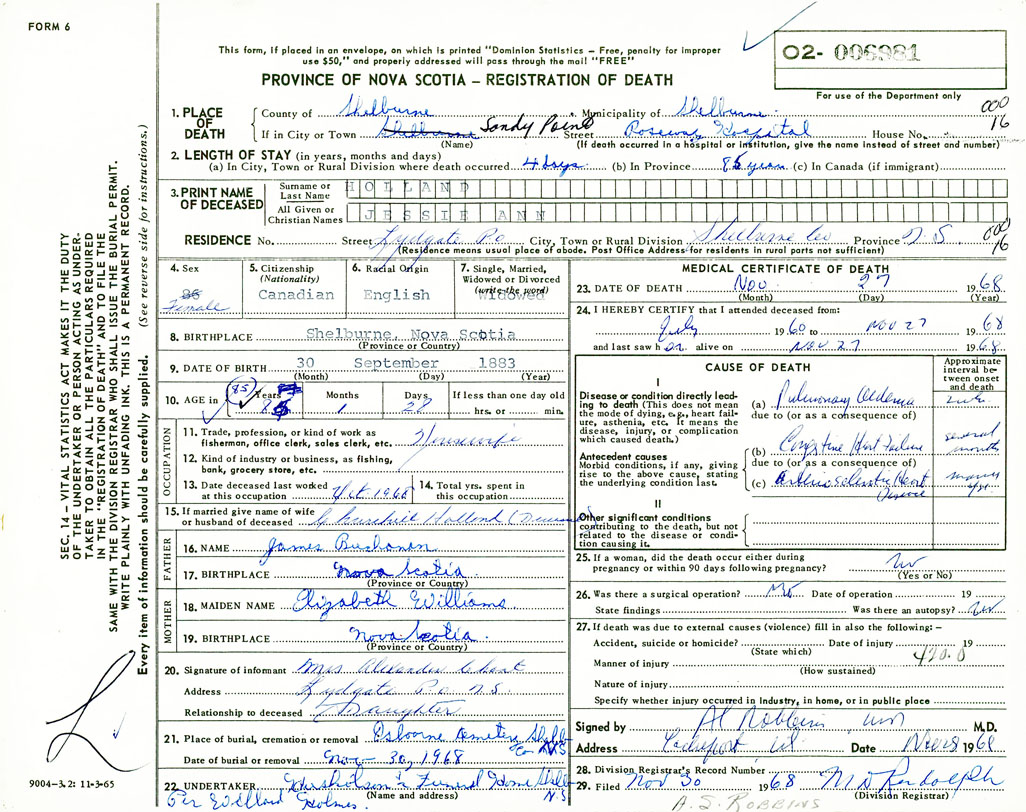 FORM 6
This form, if placed in an envelope, on which is printed "Dominion Statistics – Free, penalty for improper
use $50," and properly addressed will pass through the mail "FREE"
PROVINCE OF NOVA SCOTIA – REGISTRATION OF DEATH
02- 006981
For use of the Department only
000
16
1. PLACE OF DEATH
County of Shelburne Municipality of Shelburne
If in City or Town Shelburne Sandy Point Street Roseway Hospital House No.
(Name) (If death occurred in a hospital or institution, give the name instead of street and number)
2. LENGTH OF STAY (in years, months and days)
(a) In City, Town or Rural Division where death occurred 4 days (b) In Province 85 years (c) In Canada (if immigrant)
3. PRINT NAME OF DECEASED
Surname or Last Name HOLLAND
All Given or Christian Names JESSIE ANN
000
16
RESIDENCE No. Street Lydgate P.O. City, Town or Rural Division Shelburne Co Province N.S
(Residence means usual place of abode. Post Office Address for residents in rural parts not sufficient)
4. Sex Female
5. Citizenship (Nationality) Canadian
6. Racial Origin English
7. Single, Married, Widowed or Divorced (write the word) Widowed
8. BIRTHPLACE Shelburne, Nova Scotia
(Province or Country)
9. DATE OF BIRTH 30 September 1883
(Month) (Day) (Year)
10. AGE in (85) Years 85 Months 1 Days 28 If less than one day old hrs. or min.
OCCUPATION
11. Trade, profession, or kind of work as fisherman, office clerk, sales clerk, etc. Housewife
12. Kind of industry or business, as fishing, bank, grocery store, etc.
13. Date deceased last worked at this occupation Oct. 1968
14. Total yrs. spent in this occupation
15. If married give name of wife or husband of deceased Holland (Deceased
FATHER
16. NAME James Buchanan
17. BIRTHPLACE Nova Scotia
(Province or Country)
MOTHER
18. MAIDEN NAME Elizabeth Williams
19. BIRTHPLACE Nova Scotia
(Province or Country)
20. Signature of informant Mrs Alexander
Address Lydgate P.O. N.S.
Relationship to deceased Daughter
21. Place of burial, cremation or removal Osborne Cemetery Shelb Co N.S
Date of burial or removal Nov 30, 1968
22. UNDERTAKER Funeral Home Shelb N.S
(Name and address)
Per Holmes
MEDICAL CERTIFICATE OF DEATH
23. DATE OF DEATH Nov 27 1968
(Month) (Day) (Year)
24. I HEREBY CERTIFY that I attended deceased from:
July 1960 to NOV 27 1968
and last saw h er alive on NOV 27 1968
CAUSE OF DEATH
Approximate interval between onset and death
I
Disease or condition directly leading to death (This does not mean the mode of dying, e.g., heart failure, asthenia, etc. It means the disease, injury, or complication which caused death.)
(a) Pulmonary Oedema
due to (or as a consequence of)
Antecedent causes
Morbid conditions, if any, giving rise to the above cause, stating the underlying condition last.
(b) Congestive Heart Failure several months
due to (or as a consequence of)
(c) Arteriosclerotic Heart Disease many yrs.
II
Other significant conditions contributing to the death, but not related to the disease or condition causing it.
25. If a woman, did the death occur either during pregnancy or within 90 days following pregnancy? No
(Yes or No)
26. Was there a surgical operation? No Date of operation 19
State findings Was there an autopsy? No
27. If death was due to external causes (violence) fill in also the following: –
Accident, suicide or homicide? Date of injury 19
(State which)
420.0
Manner of injury
(How sustained)
Nature of injury
Specify whether injury occurred in industry, in home, or in public place
Signed by Al Robbins M.D.
Address Lockeport Date Nov 28 1968
28. Division Registrar's Record Number
29. Filed Nov 30 1968 M D Randolph
(Division Registrar)
A. S. ROBBINS
SEC. 14 – VITAL STATISTICS ACT MAKES IT THE DUTY
OF THE UNDERTAKER OR PERSON ACTING AS UNDER-
TAKER TO OBTAIN ALL THE PARTICULARS REQUIRED
IN THE "REGISTRATION OF DEATH" AND TO FILE THE
SAME WITH THE DIVISION REGISTRAR WHO SHALL ISSUE THE BURIAL PERMIT.
WRITE PLAINLY WITH UNFADING INK. THIS IS A PERMANENT RECORD.
Every item of information should be carefully supplied. (See reverse side for instructions.)
9004-3.2: 11-3-65